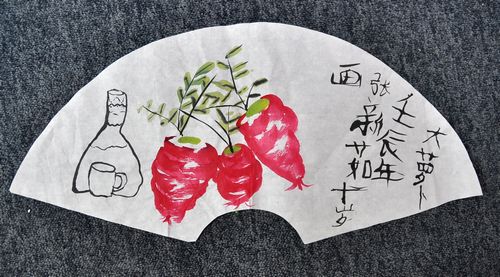 大萝卜
壬辰年
张新茹十岁
画